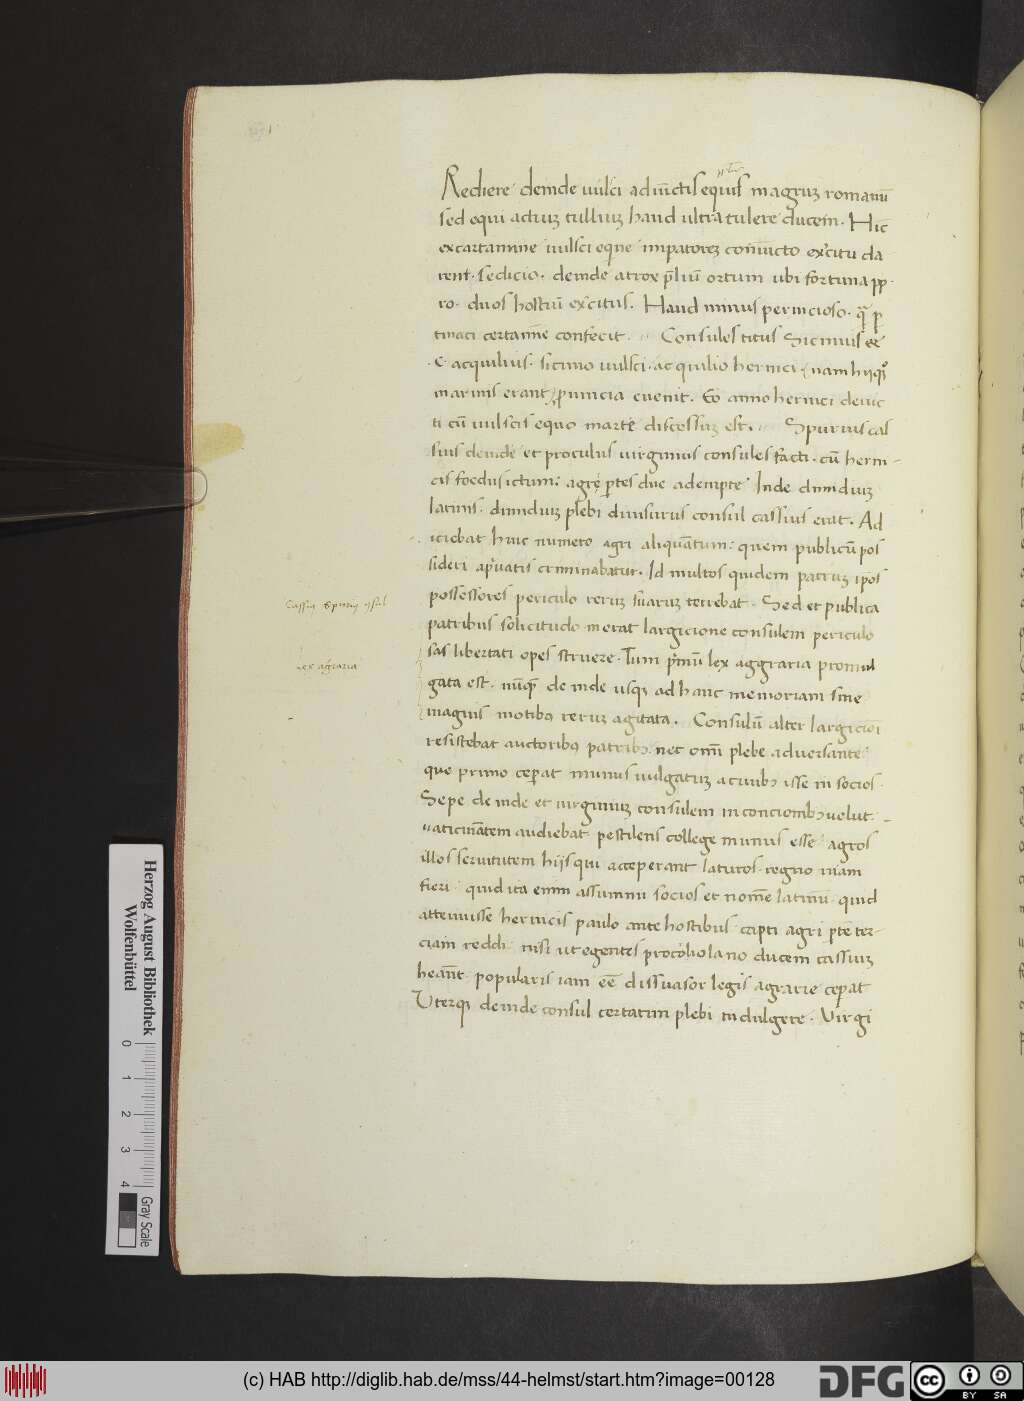 Rediere deinde uulsci adiūctis equis in agruʒ romanū
sed equi actiuʒ tulliuʒ haud ultra tulere ducem. Hīc
ex certamine uulsci eqne impatoreʒ coniuncto exercitu da
rent. sedicio. deinde atrox p̄liū ortum ubi fortuna pp.
ro. duos hostiū exercitus. Haud minus pernicioso. q̄ p
tinaci certamīe confecit. Consules titus Sicinius &
.C. acquilius. sicinio uulsci. acquilio hernici. nam hijqȝ
in armis erant prouincia euenit. Eo anno hernici deuic
ti cū uulscis equo marte discessuʒ est. Spurius cas
sius deinde et proculus uirginius consules facti. cū herni-
cis foedus ictum: agrę p̄tes due adempte Inde dimidiuʒ
latinis. dimidiuʒ plebi diuisurus consul cassius erat. Ad
iciebat huic numero agri aliquātum: quem publicū pos
sideri a priuatis criminabatur. Id multos quidem patruʒ ipōs
possessores periculo reruʒ suaruʒ terrebat. Sed et publica
patribus solicitudo inerat largicione consulem periculo
sas libertati opes struere. Tum primū lex aggraria promul
gata est. nūq̄ deinde usqʒ ad hanc memoriam sine
magnis motibȝ reruʒ agitata. Consulū alter largicioī
resistebat auctoribȝ patribȝ. nec omī plebe aduersante
que primo ceperat munus uulgatuʒ a ciuibȝ isse in socios.
Sepe deinde et uirginiuʒ consulem in concionibȝ uelut
uaticinātem audiebat pestilens college munus esse agros
illos seruitutem hijs qui acceperant laturos. regno uiam
fieri quid ita enim assummi socios et nomē latinū. quid
attinuisse hernicis paulo ante hostibus capti agri p̄tē ter-
ciam reddi. nisi ut egentes pro coriolano ducem cassiuʒ
heant. popularis iam eē dissuasor legis agrarie ceperat
Uterqʒ deinde consul certatim plebi indulgere. Uirgi
Cassiu spurij
Lex agraria
Herzog August Bibliothek
Wolfenbüttel
0 1 2 3 4
Gray Scale
(c) HAB http://diglib.hab.de/mss/44-helmst/start.htm?image=00128
DFG
cc BY SA